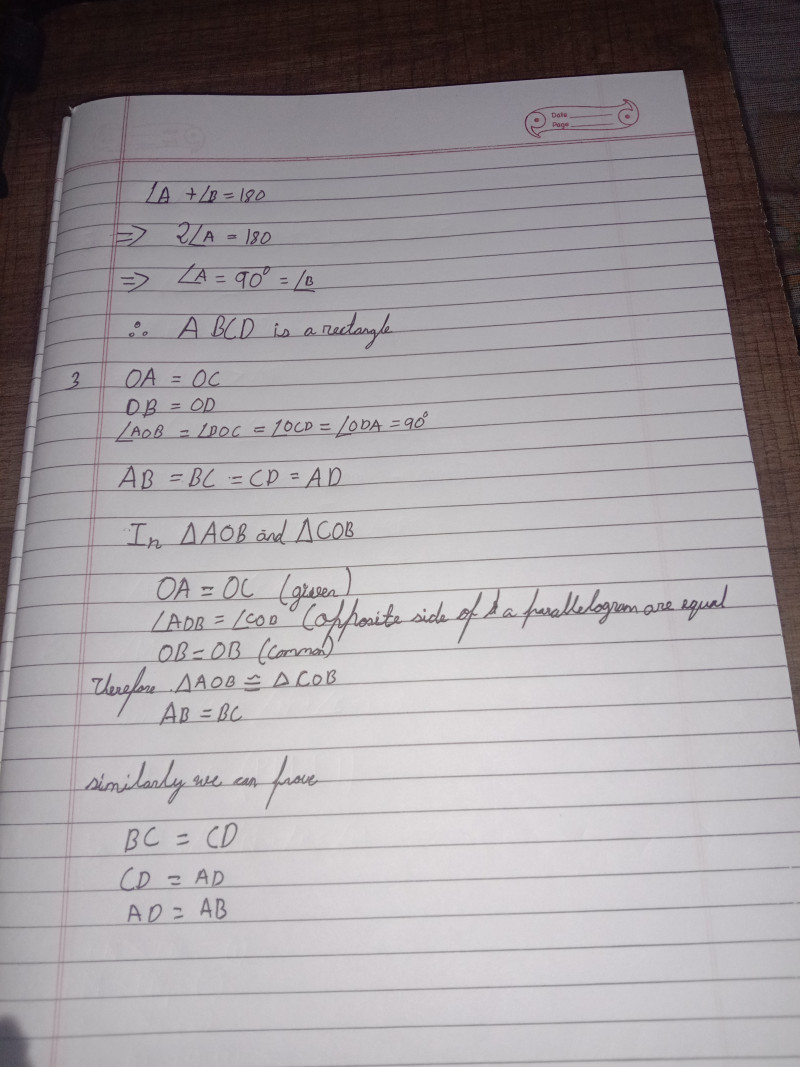 Date
Page
∠A + ∠B = 180
⇒ 2∠A = 180
⇒ ∠A = 90° = ∠B
∴ ABCD is a rectangle
3 OA = OC
OB = OD
∠AOB = ∠DOC = ∠OCD = ∠ODA = 90°
AB = BC = CD = AD
In △AOB and △COB
OA = OC (given)
∠AOB = ∠COB (opposite side of a parallelogram are equal
OB = OB (common)
Therefore △AOB ≅ △COB
AB = BC
similarly we can prove
BC = CD
CD = AD
AD = AB